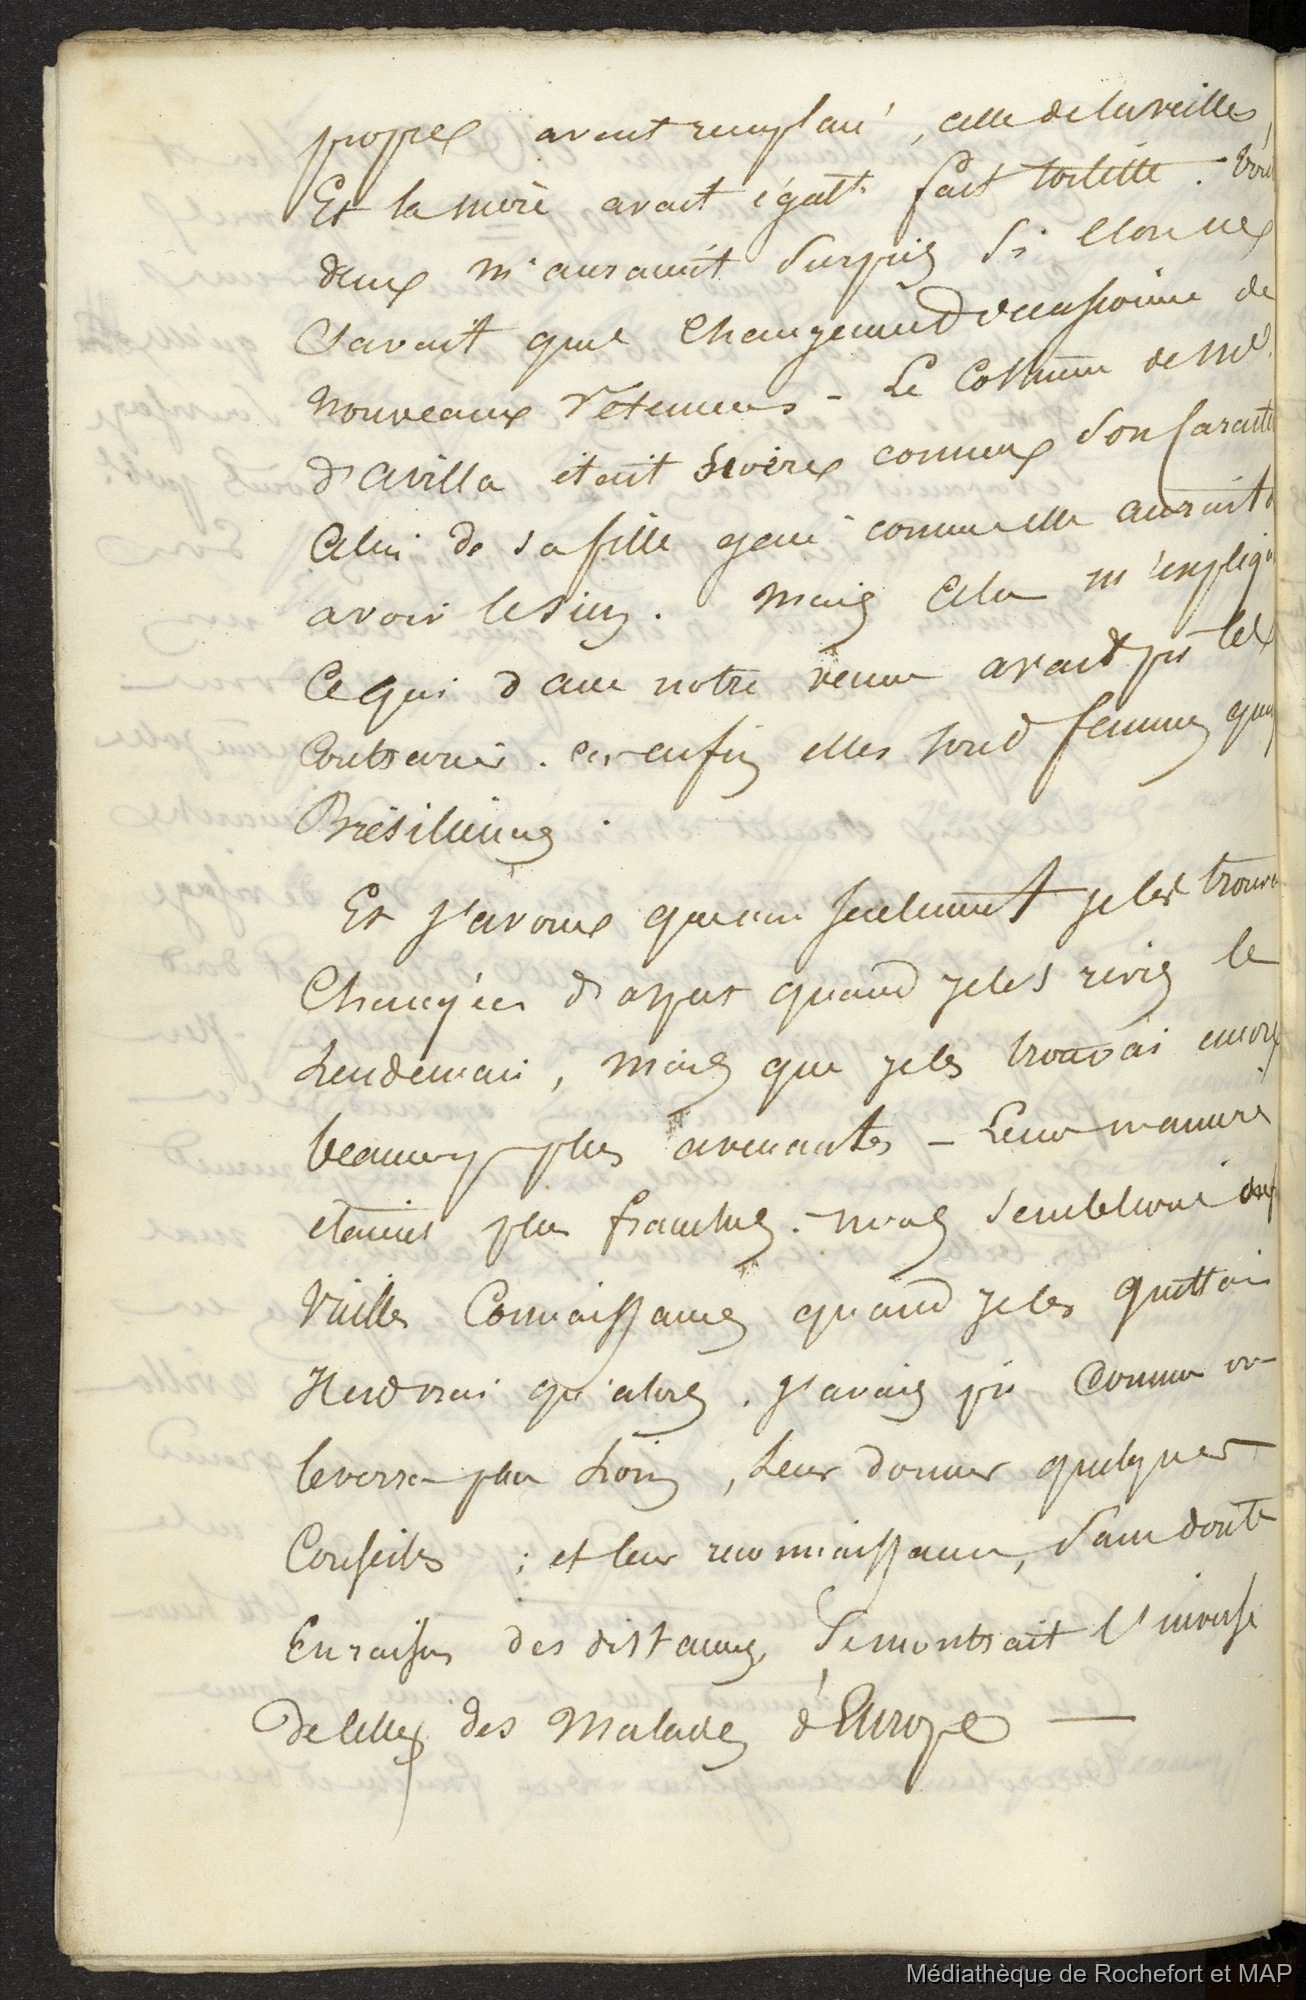 propre avait remplacé, celle de la veille,
Et la mère avait égalt fait toilette. tous
deux m'auraient surpris si l'on ne
savait quel changement occasionne de
nouveaux vetemens - Le Costume de Md
d'avilla était sévère comme son Caractè
Celui de sa fille gai comme elle aurait dû
avoir le sien. Mais Cela m'expliqu
Ce qui dans notre venue avait pu les
Contrarier. Car enfin elles sont femmes quoiq
Brésiliennes.
Et j'avoue que non seulement je les trouva
Changées d'aspect quand je les revis le
Lendemain, Mais que je les trouvai encore
beaucoup plus avenantes - Leurs manières
etaient plus franches. nous semblions de
Vieilles Connaissances quand je les quittai
Il est vrai qu'alors. j'avais pu Comme on
le verra plus Loin, Leur donner quelques
Conseils ; et leur reconnaissance, sans doute
En raison des distances, Se montrait l'inverse
De celle des Malades d'Europe —
Médiathèque de Rochefort et MAP